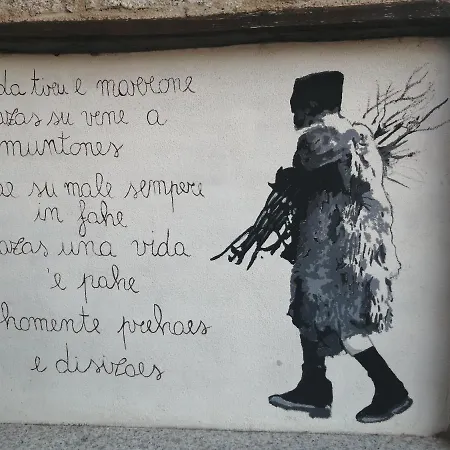 da tiru e marrone
azas su vene a
muntones
ae su male sempere
in fahe
azas una vida
'e pahe
homente prehaes
e disizaes